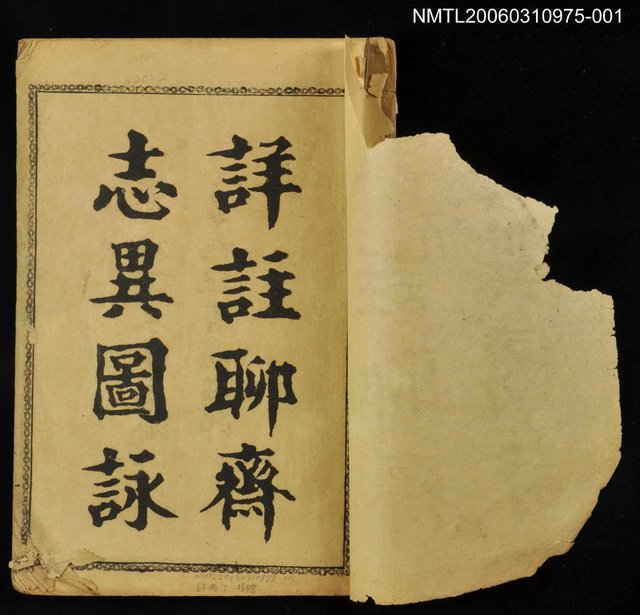 NMTL20060310975-001
詳註聊齋
志異圖詠
NMTL20060310975-001
許丙丁 捐贈